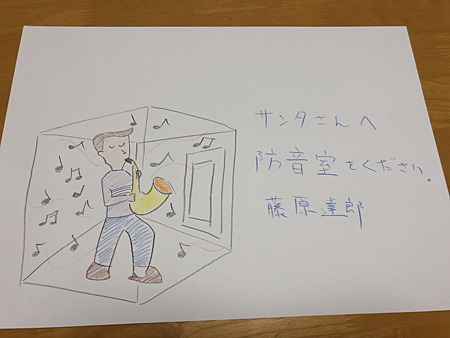 サンタさんへ
防音室をください。
藤原達郎